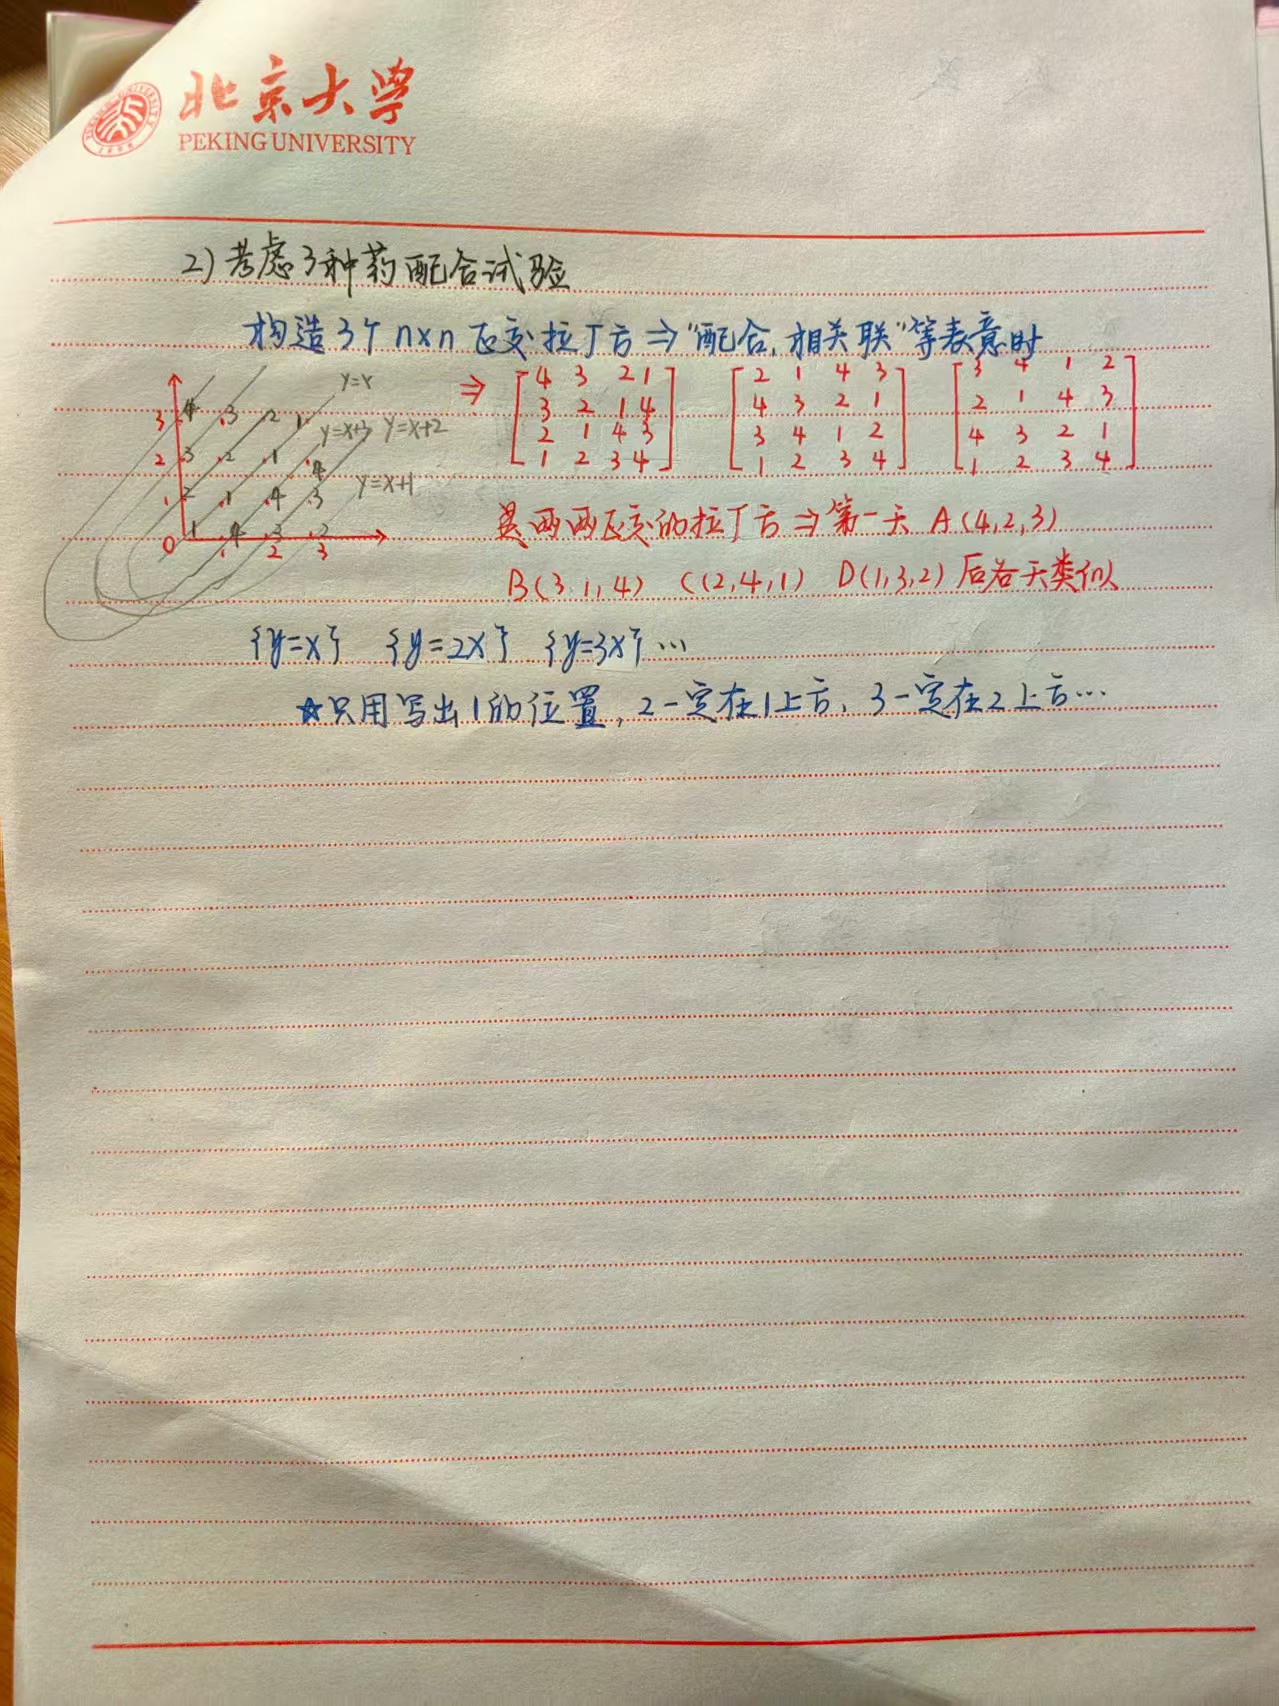 北京大学
PEKING UNIVERSITY
2)考虑3种药配合试验
构造3个n×n正交拉丁方⇒"配合,相关联"等表意时
y=x
y=x+3 y=x+2
y=x+1
3 4 3 2 1
2 3 2 1 4
1 2 1 4 3
1 4 3 2
0 2 3
⇒ [4 3 2 1 [2 1 4 3 [3 4 1 2
3 2 1 4 4 3 2 1 2 1 4 3
2 1 4 3 3 4 1 2 4 3 2 1
1 2 3 4] 1 2 3 4] 1 2 3 4]
是两两正交的拉丁方⇒第一天 A(4,2,3)
B(3.1,4) C(2,4,1) D(1,3,2) 后各天类似
{y=x} {y=2x} {y=3x}…
☆只用写出1的位置,2一定在1上方、3一定在2上方…